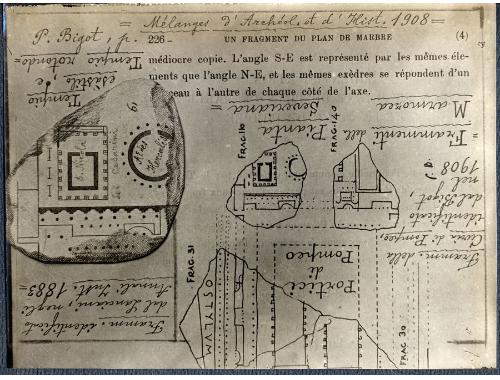 = Mélanges d'Archéol. et d'Hist. 1908 =
P. Bigot, p. 226 - UN FRAGMENT DU PLAN DE MARBRE (4)
médiocre copie. L'angle S-E est représenté par les mêmes élé-
ments que l'angle N-E, et les mêmes exèdres se répondent d'un
ceau à l'autre de chaque côté de l'axe.
= Frammenti della Pianta
Marmorea Severiana =
Tempio esastilo e
Tempio rotondo
FRAG. 110
FRAG. 140
Framm. della
Curia di Pompeo,
identificato
dal Bigot,
nel
1908
Portici
di
Pompeo
FRAG. 31
FRAG 30
OSTYLUM
Framm. identificato
dal Lanciani, negli
Annali Ist. 1883=